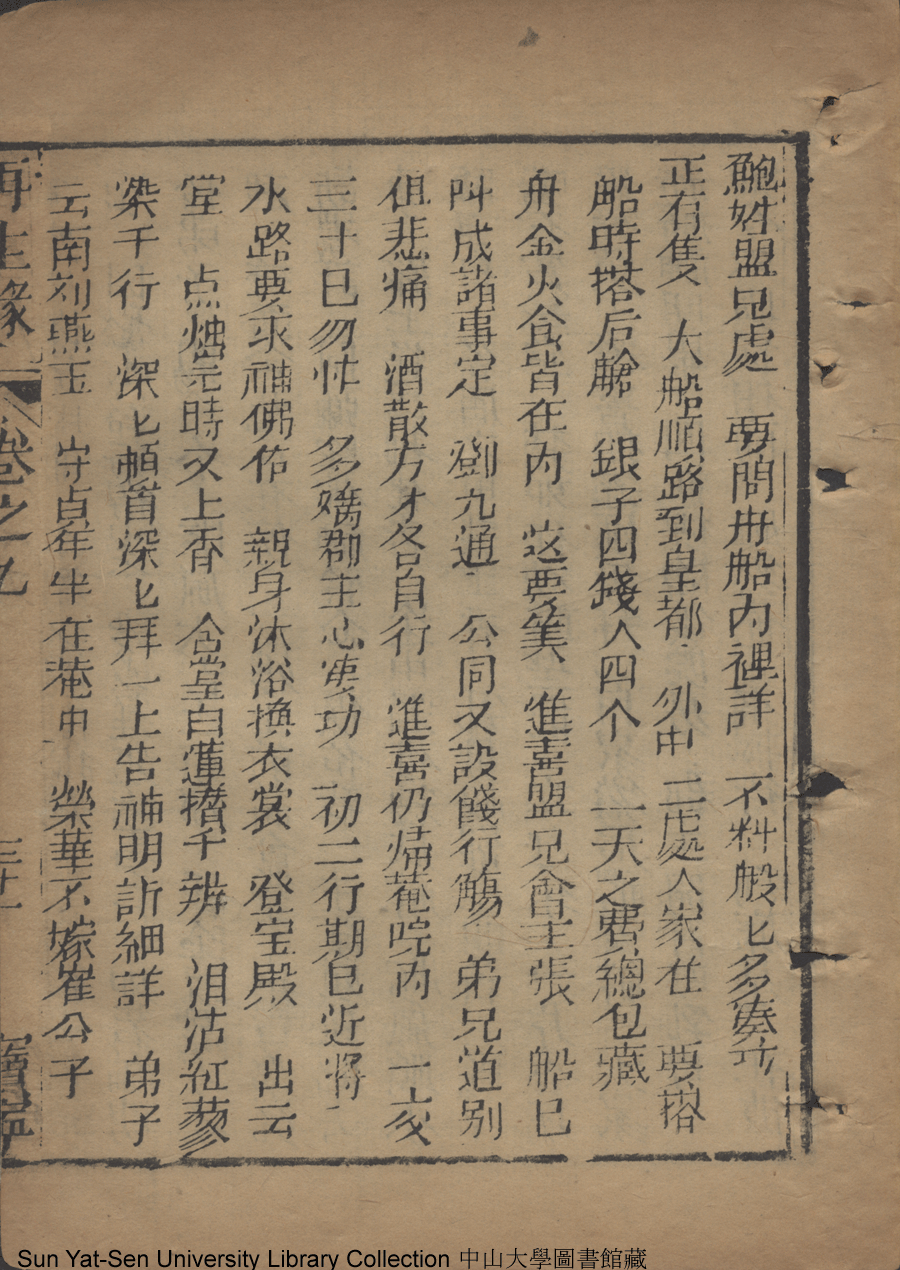 鮑姓盟兄處　要問卅船內裡詳　不料般匕多湊齐
正有隻　大船順路到皇都　外中二處人家在　要搭
船時搭后艙　銀子四錢人四个　一天之費總包藏
舟金火食皆在內　这要美　進喜盟兄會主張　船已
叫成諸事定　鄧九通　公同又設餞行觴　弟兄道别
伹悲痛　酒散方才各自行　進喜仍帰菴院內　一亥
三十巳勿忙　多嬌郡主心　功　初二行期巳近將
水路要求神佛佑　親身沐浴換衣裳　登宝殿　出云
堂　点烛完時又上香　含掌白蓮搢千辨　泪沾紅蓼
染千行　深匕頓首深匕拜　一上告神明訴細詳　弟子
云南刘燕玉　守貞年半在菴中　榮華不嫁崔公子
再生緣　卷之九　三十一　寶寧
Sun Yat-Sen University Library Collection 中山大學圖書館藏